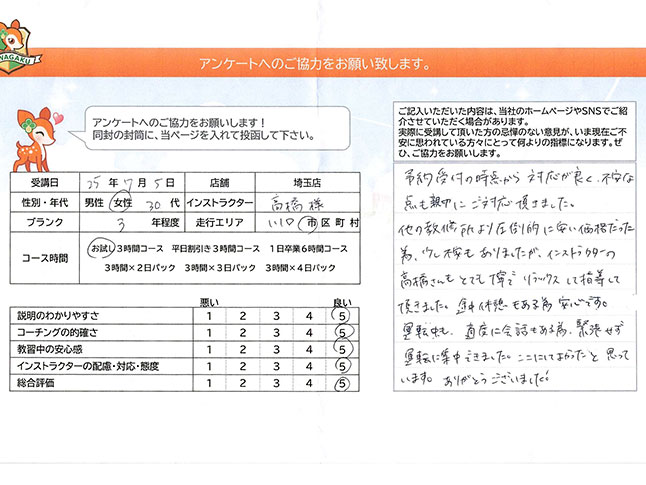 WAGAKU
アンケートへのご協力をお願い致します。
アンケートへのご協力をお願いします！
同封の封筒に、当ページを入れて投函して下さい。
ご記入いただいた内容は、当社のホームページやSNSでご紹
介させていただく場合があります。
実際に受講して頂いた方の忌憚のない意見が、いま現在ご不
安に思われている方々にとって何よりの指標になります。ぜ
ひ、ご協力をお願いします。
受講日 25年 7月 5日 店舗 埼玉店
性別・年代 男性 女性 30代 インストラクター 高橋様
ブランク 3 年程度 走行エリア 川口 市区町村
コース時間 お試し3時間コース 平日割引き3時間コース 1日卒業6時間コース
3時間×2日パック 3時間×3日パック 3時間×4日パック
悪い 良い
説明のわかりやすさ 1 2 3 4 5
コーチングの的確さ 1 2 3 4 5
教習中の安心感 1 2 3 4 5
インストラクターの配慮・対応・態度 1 2 3 4 5
総合評価 1 2 3 4 5
予約受付の時点から対応が良く、不安な
点も親切にご対応頂きました。
他の教習所より圧倒的に安い価格だった
為、少し不安もありましたが、インストラクターの
高橋さんもとても丁寧でリラックスして指導して
頂きました。休憩もある為安心です。
運転中も、適度に会話もある為、緊張せず
運転に集中できました。ここにしてよかったと思って
います。ありがとうございました!